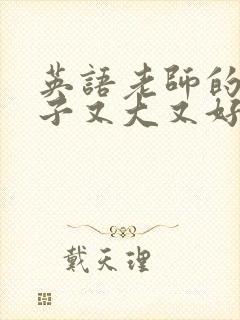 英語老師的
子又大又好
戴天理